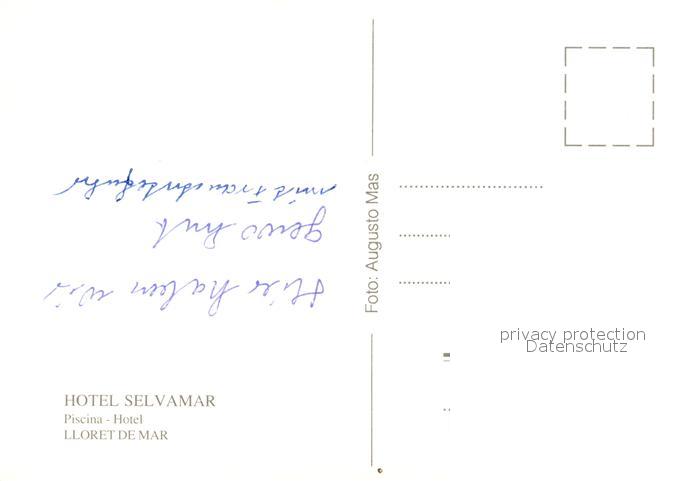 Hier haben wir
gewohnt
mit Frau
HOTEL SELVAMAR
Piscina - Hotel
LLORET DE MAR
Foto: Augusto Mas
privacy protection
Datenschutz